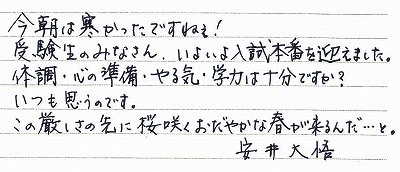 今朝は寒かったですねぇ!
受験生のみなさん、いよいよ入試本番を迎えました。
体調・心の準備・やる気・学力は十分ですか?
いつも思うのです。
この厳しさの先に桜咲くおだやかな春が来るんだ…と。
安井大悟